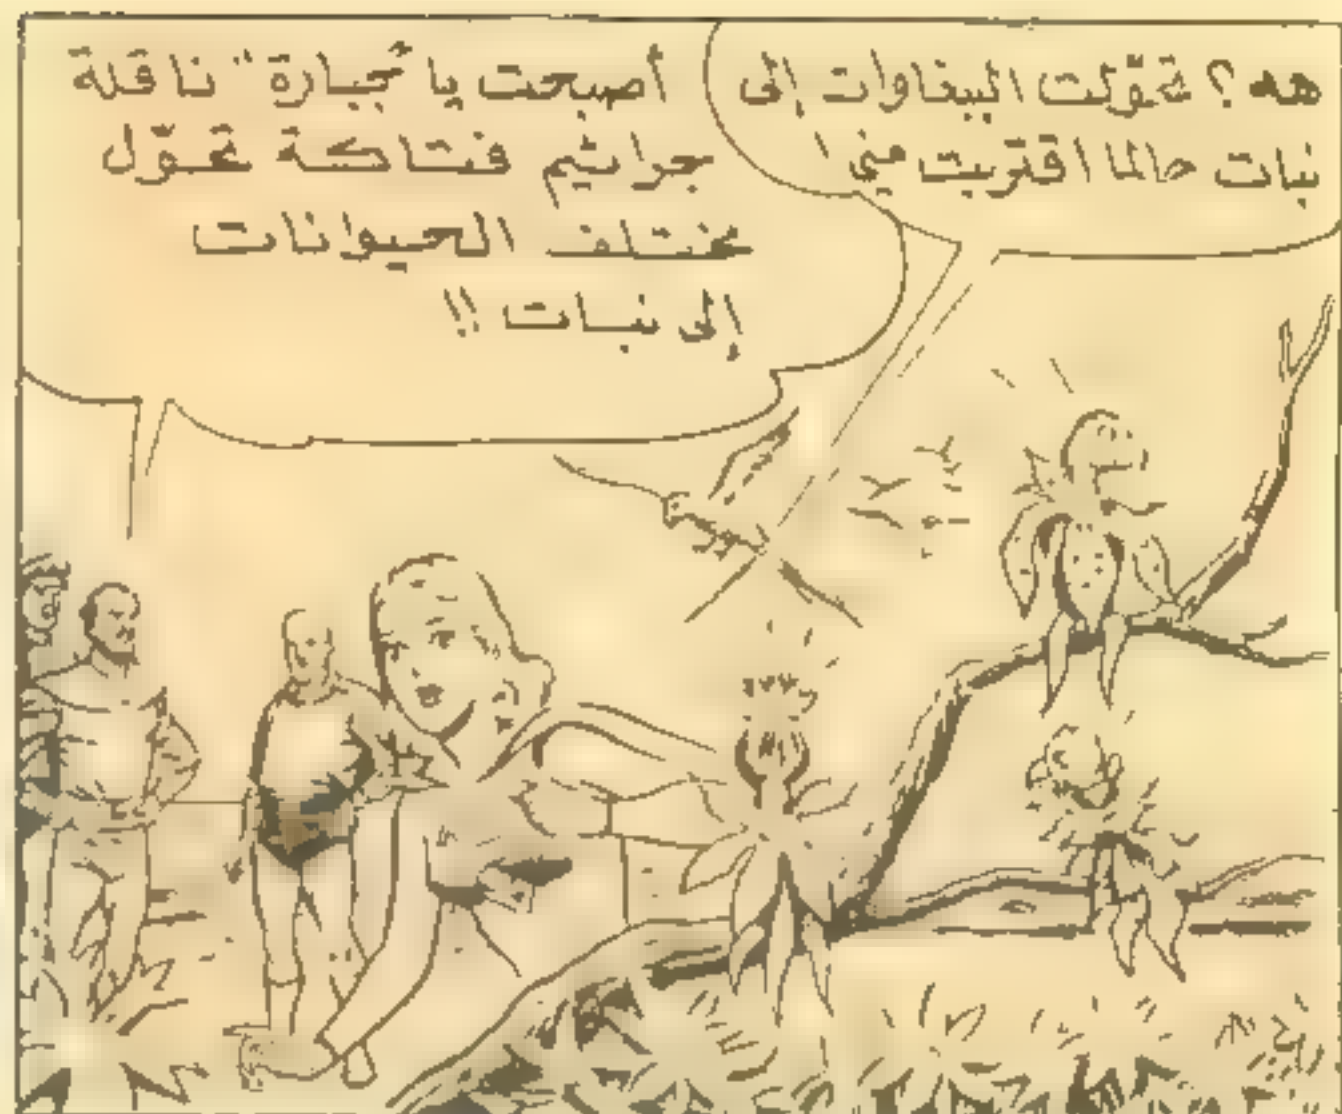 هه؟ تحوّلت الببغاوات إلى
نبات حالما اقتربت مني!
أصبحت يا "جبارة" ناقلة
جراثيم فتاكة تحوّل
مختلف الحيوانات
إلى نبات !!